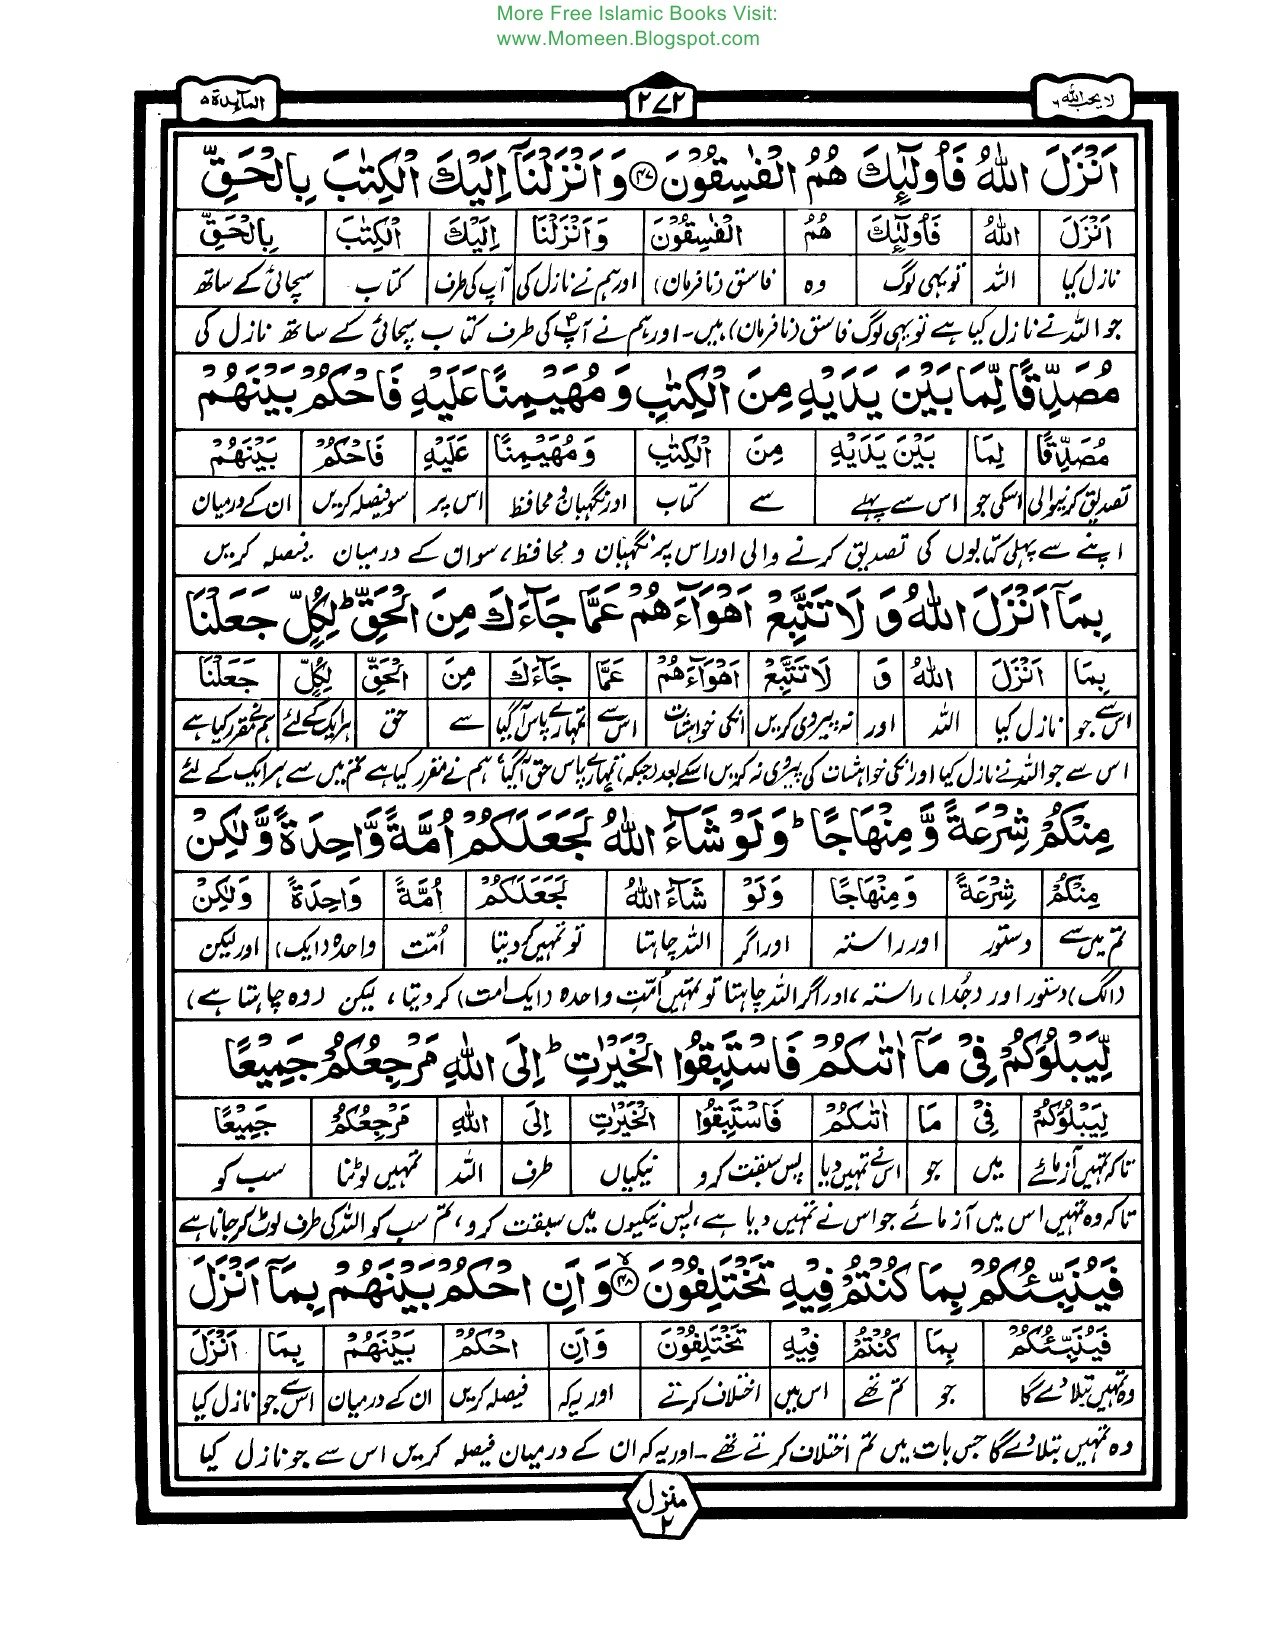 More Free Islamic Books Visit:
www.Momeen.Blogspot.com
لا یحب الله ٦
۲۷۲
المآىِٕدة ۵
اَنْزَلَ اللّٰهُ فَاُولٰٓىِٕكَ هُمُ الْفٰسِقُوْنَ ﴿۴۷﴾ وَ اَنْزَلْنَآ اِلَيْكَ الْكِتٰبَ بِالْحَقِّ
اَنْزَلَ اللّٰهُ فَاُولٰٓىِٕكَ هُمُ الْفٰسِقُوْنَ وَاَنْزَلْنَا اِلَيْكَ الْكِتٰبَ بِالْحَقِّ
نازل کیا اللہ تو یہی لوگ وہ فاسق (نافرمان) اور ہم نے نازل کی آپ کی طرف کتاب سچائی کے ساتھ
جو اللہ نے نازل کیا ہے تو یہی لوگ فاسق (نافرمان) ہیں۔ اور ہم نے آپؐ کی طرف کتاب سچائی کے ساتھ نازل کی
مُصَدِّقًا لِّمَا بَيْنَ يَدَيْهِ مِنَ الْكِتٰبِ وَ مُهَيْمِنًا عَلَيْهِ فَاحْكُمْ بَيْنَهُمْ
مُصَدِّقًا لِمَا بَيْنَ يَدَيْهِ مِنَ الْكِتٰبِ وَمُهَيْمِنًا عَلَيْهِ فَاحْكُمْ بَيْنَهُمْ
تصدیق کرنیوالی اسکی جو اس سے پہلے سے کتاب اور نگہبان و محافظ اس پر سو فیصلہ کریں ان کے درمیان
اپنے سے پہلی کتابوں کی تصدیق کرنے والی اور اس پر نگہبان و محافظ، سو ان کے درمیان فیصلہ کریں
بِمَآ اَنْزَلَ اللّٰهُ وَ لَا تَتَّبِعْ اَهْوَآءَهُمْ عَمَّا جَآءَكَ مِنَ الْحَقِّ ؕ لِكُلٍّ جَعَلْنَا
بِمَا اَنْزَلَ اللّٰهُ وَ لَا تَتَّبِعْ اَهْوَآءَهُمْ عَمَّا جَآءَكَ مِنَ الْحَقِّ لِكُلٍّ جَعَلْنَا
اس سے جو نازل کیا اللہ اور نہ پیروی کریں انکی خواہشات اس سے تمہارے پاس آگیا سے حق ہر ایک کے لئے ہم نے مقرر کیا ہے
اس سے جو اللہ نے نازل کیا اور انکی خواہشات کی پیروی نہ کریں اسکے بعد (جبکہ) تمہارے پاس حق آگیا، ہم نے مقرر کیا ہے تم میں سے ہر ایک کے لئے
مِنْكُمْ شِرْعَةً وَّ مِنْهَاجًا ؕ وَلَوْ شَآءَ اللّٰهُ لَجَعَلَكُمْ اُمَّةً وَّاحِدَةً وَّلٰكِنْ
مِنْكُمْ شِرْعَةً وَمِنْهَاجًا وَلَوْ شَآءَ اللّٰهُ لَجَعَلَكُمْ اُمَّةً وَاحِدَةً وَلٰكِنْ
تم میں سے دستور اور راستہ اور اگر اللہ چاہتا تو تمہیں کر دیتا اُمّت واحدہ (ایک) اور لیکن
(الگ) دستور اور (جُدا) راستہ، اور اگر اللہ چاہتا تو تمہیں اُمّتِ واحدہ (ایک امت) کر دیتا، لیکن (وہ چاہتا ہے)
لِّيَبْلُوَكُمْ فِيْ مَآ اٰتٰىكُمْ فَاسْتَبِقُوا الْخَيْرٰتِ ؕ اِلَى اللّٰهِ مَرْجِعُكُمْ جَمِيْعًا
لِيَبْلُوَكُمْ فِيْ مَا اٰتٰىكُمْ فَاسْتَبِقُوا الْخَيْرٰتِ اِلَى اللّٰهِ مَرْجِعُكُمْ جَمِيْعًا
تا کہ تمہیں آزمائے میں جو اس نے تمہیں دیا پس سبقت کرو نیکیاں طرف اللہ تمہیں لوٹنا سب کو
تا کہ وہ تمہیں اس میں آزمائے جو اس نے تمہیں دیا ہے، پس نیکیوں میں سبقت کرو، تم سب کو اللہ کی طرف لوٹ کر جانا ہے
فَيُنَبِّئُكُمْ بِمَا كُنْتُمْ فِيْهِ تَخْتَلِفُوْنَ ﴿۴۸﴾ۙ وَ اَنِ احْكُمْ بَيْنَهُمْ بِمَآ اَنْزَلَ
فَيُنَبِّئُكُمْ بِمَا كُنْتُمْ فِيْهِ تَخْتَلِفُوْنَ وَاَنِ احْكُمْ بَيْنَهُمْ بِمَا اَنْزَلَ
وہ تمہیں بتلا دے گا جو تم تھے اس میں اختلاف کرتے اور یہ کہ فیصلہ کریں ان کے درمیان اس سے جو نازل کیا
وہ تمہیں بتلا دے گا جس بات میں تم اختلاف کرتے تھے۔ اور یہ کہ ان کے درمیان فیصلہ کریں اس سے جو نازل کیا
منزل ۲